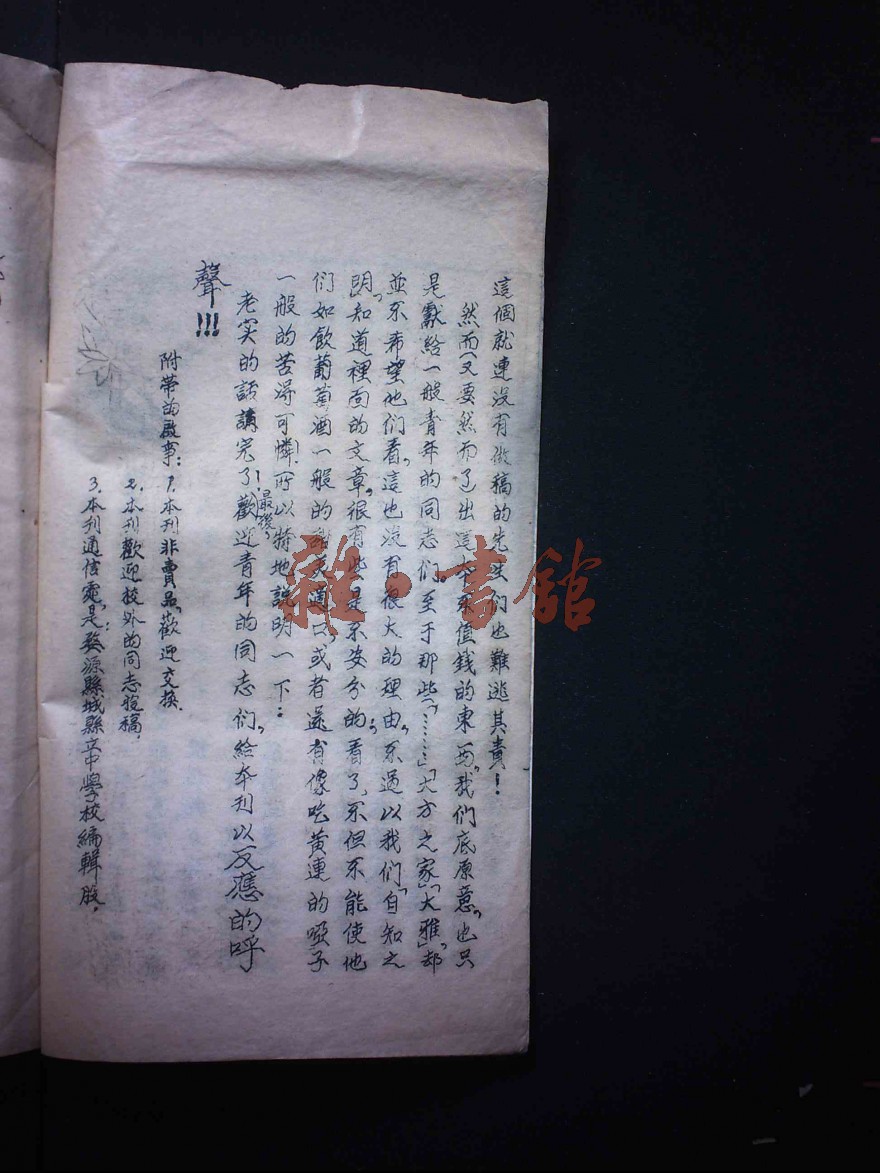 這個就連沒有做稿的先生們也難逃其責！
然而（又要然而了）出這大不值錢的東西，我們底原意，也只
是獻給一般青年的同志們。至于那些「……」「大方之家」「大雅」，却
並不希望他們看。這也沒有很大的理由。不過以我們「自知之
明」，知道裡面的文章，很有些是不安分的；看了，不但不能使他
們如飲葡萄酒一般的甜天適口，或者還有像吃黄連的啞子
一般的苦得可憐！所以特地說明一下：
老实的話講完了！最後，歡迎青年的同志們，給本刊以反應的呼
聲!!!
附帶的啟事：1.本刊非賣品，歡迎交換.
2.本刊歡迎校外的同志投稿.
3.本刊通信處是：婺源縣城縣立中學校編輯股.
雜·書館